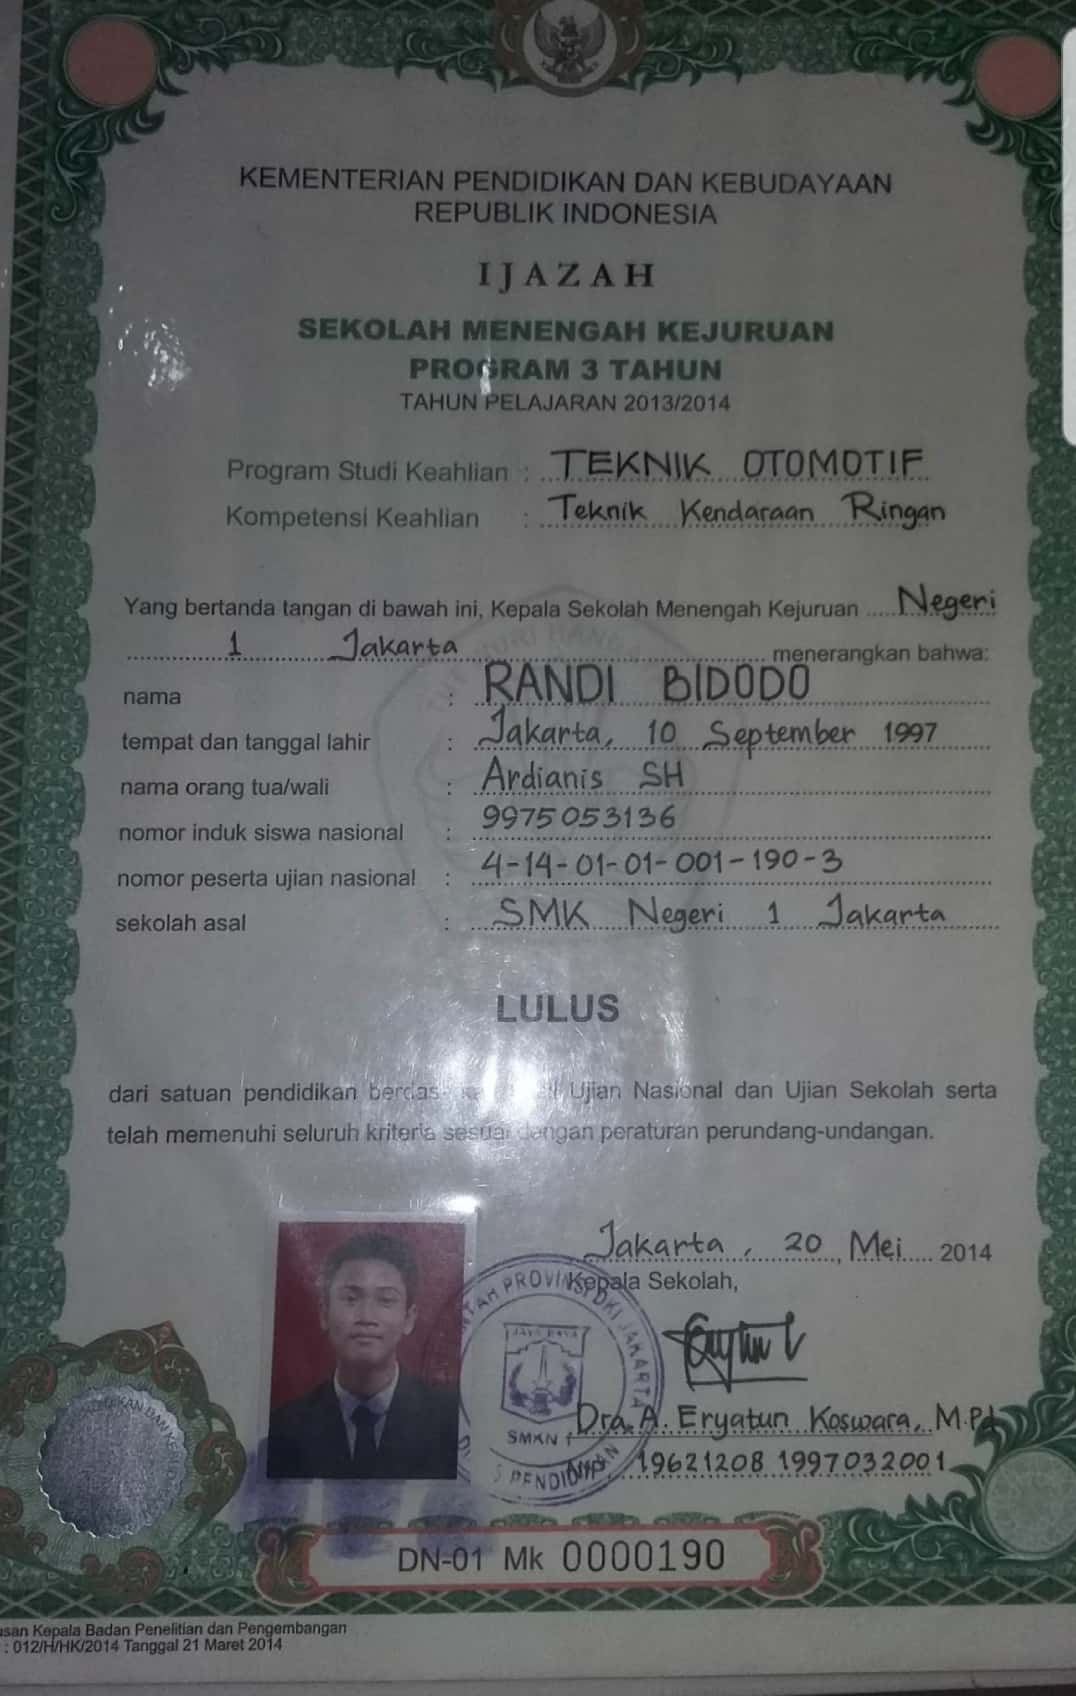 KEMENTERIAN PENDIDIKAN DAN KEBUDAYAAN
REPUBLIK INDONESIA
IJAZAH
SEKOLAH MENENGAH KEJURUAN
PROGRAM 3 TAHUN
TAHUN PELAJARAN 2013/2014
Program Studi Keahlian : TEKNIK OTOMOTIF
Kompetensi Keahlian : Teknik Kendaraan Ringan
Yang bertanda tangan di bawah ini, Kepala Sekolah Menengah Kejuruan Negeri
1 Jakarta menerangkan bahwa:
nama : RANDI BIDODO
tempat dan tanggal lahir : Jakarta, 10 September 1997
nama orang tua/wali : Ardianis SH
nomor induk siswa nasional : 9975053136
nomor peserta ujian nasional : 4-14-01-01-001-190-3
sekolah asal : SMK Negeri 1 Jakarta
LULUS
dari satuan pendidikan Ujian Nasional dan Ujian Sekolah serta
telah memenuhi seluruh kriteria sesuai dengan peraturan perundang-undangan.
Jakarta, 20 Mei 2014
Kepala Sekolah,
PROVINSI DKI JAKARTA
JAYA RAYA
SMKN 1
Dra. A. Eryatun Koswara, M.Pd
19621208 1997032001
DN-01 Mk 0000190
Kepala Badan Penelitian dan Pengembangan
: 012/H/HK/2014 Tanggal 21 Maret 2014